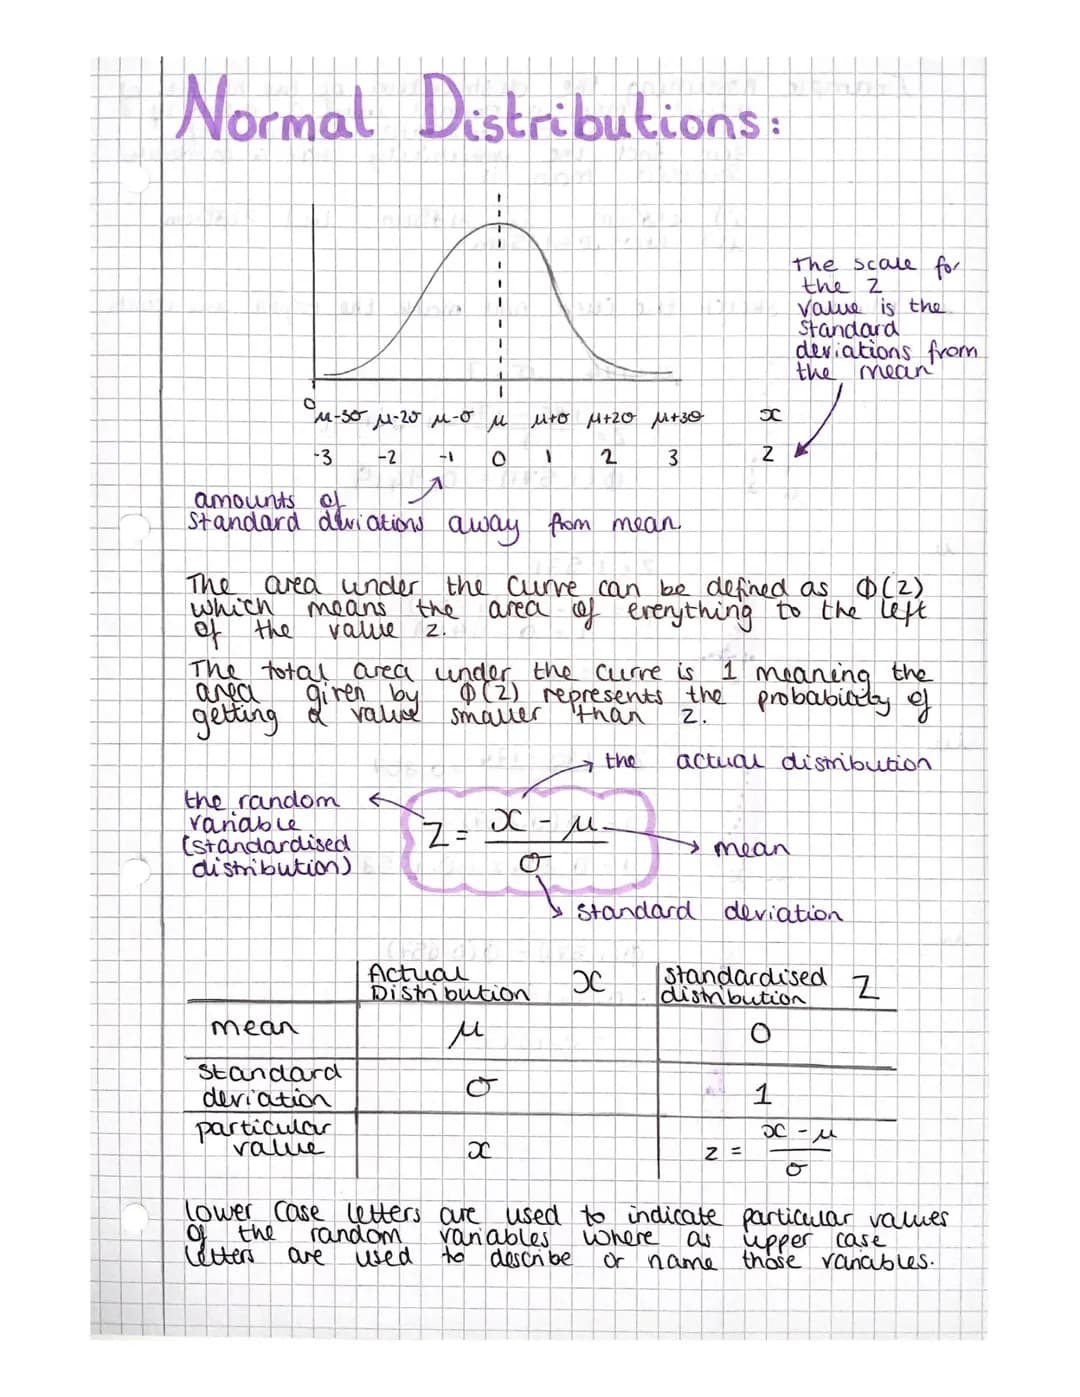 Normal Distributions:
The scale for
the z
value is the
standard
deviations from
the mean
0
μ-3σ μ-2σ μ-σ μ μ+σ μ+2σ μ+3σ x
-3 -2 -1 0 1 2 3 z
amounts of
standard deviations away from mean.
The area under the curve can be defined as Φ(z)
which means the area of everything to the left
of the value z.
The total area under the curve is 1 meaning the
area given by Φ(z) represents the probability of
getting a value smaller than z.
the actual distribution
the random
variable
(standardised
distribution)
Z = x - μ
σ
mean
standard deviation
Actual
Distribution x
standardised
distribution Z
mean μ 0
standard
deviation σ 1
particular
value x z = x - μ
σ
lower case letters are used to indicate particular values
of the random variables where as upper case
letters are used to describe or name those variables.